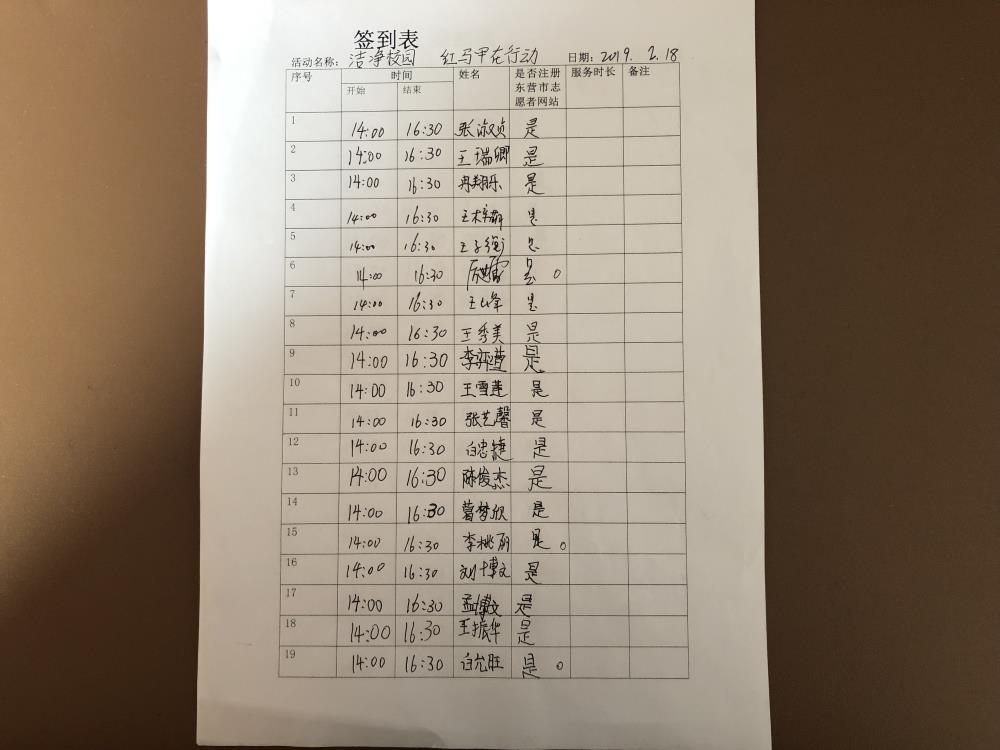 签到表
活动名称：洁净校园 红马甲在行动 日期：2019. 2.18
序号 时间 姓名 是否注册东营市志愿者网站 服务时长 备注
开始 结束
1 14:00 16:30 张淑贞 是
2 14:00 16:30 王瑞卿 是
3 14:00 16:30 冉翔乐 是
4 14:00 16:30 是
5 14:00 16:30 王子衡 是
6 14:00 16:30 是
7 14:00 16:30 王山峰 是
8 14:00 16:30 王秀美 是
9 14:00 16:30 李弈萱 是
10 14:00 16:30 王雪莲 是
11 14:00 16:30 张艺馨 是
12 14:00 16:30 白忠捷 是
13 14:00 16:30 陈俊杰 是
14 14:00 16:30 葛梦欣 是
15 14:00 16:30 李桃丽 是。
16 14:00 16:30 刘博文 是
17 14:00 16:30 孟博文 是
18 14:00 16:30 王振华 是
19 14:00 16:30 白允旺 是。